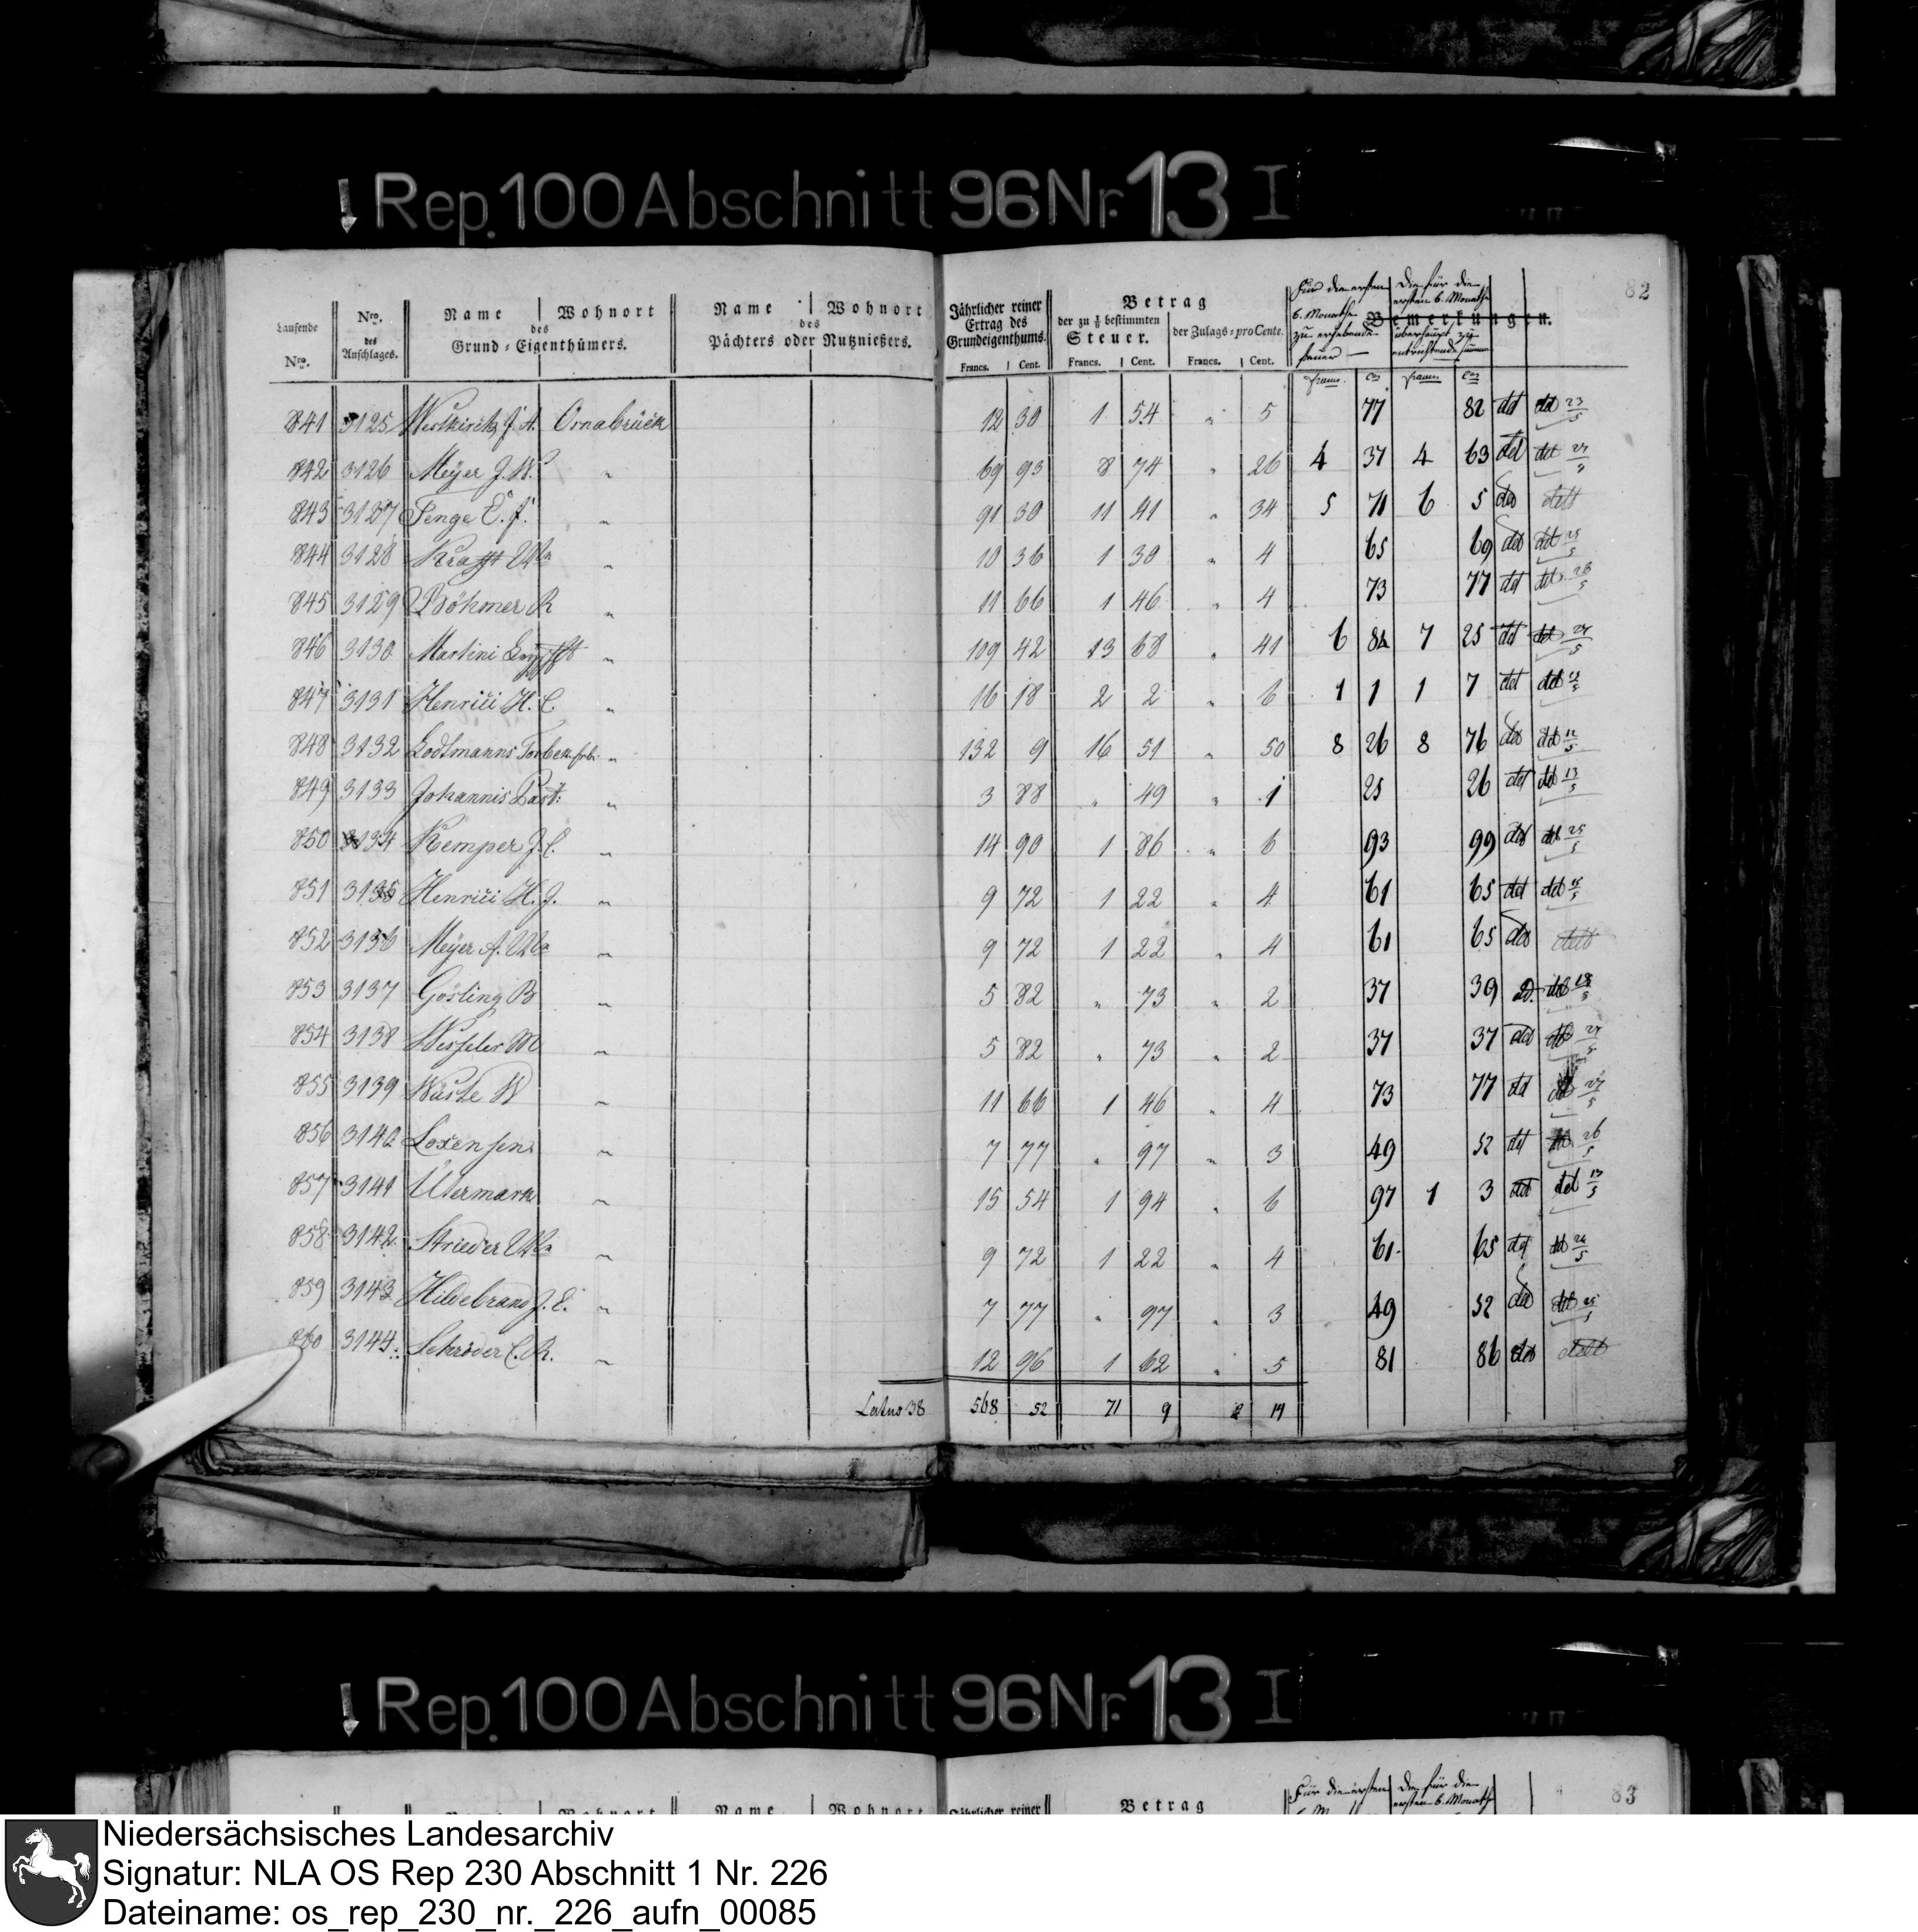 Rep. 100 Abschnitt 96 Nr. 13 I
82
Laufende Nro.
Nro. des Anschlages.
Name Wohnort
des
Grund-Eigenthümers.
Name Wohnort
des
Pächters oder Nutznießers.
Jährlicher reiner Ertrag des Grundeigenthums.
Francs. Cent.
Betrag
der zu 1/8 bestimmten Steuer.
Francs. Cent.
der Zulags-pro Cente.
Francs. Cent.
Für die ersten 6. Monathe zu erhebende Steuer
Die für die ersten 6. Monathe überhaupt zu entrichtende Summe
Bemerkungen.
francs. Ces francs Ces
841 3125 J. A. Osnabrück 12 30 1 54 " 5 77 82 dd dd 23/5
842 3126 Meyer J. W. " 69 93 8 74 " 26 4 37 4 63 dd
843 3127 Tenge E. F. " 91 30 11 41 " 34 5 71 6 5 dd
844 3128 Krafft Wwe " 10 36 1 30 " 4 65 69 dd dd 25/5
845 3129 Böhmer R " 11 66 1 46 " 4 73 77 dd
846 3130 Martini " 109 42 13 68 " 41 6 84 7 25 dd
847 3131 Henrici H. C. " 16 18 2 2 " 6 1 1 1 7 dd
848 3132 Lodtmanns " 132 9 16 51 " 50 8 26 8 76 dd dd 12/5
849 3133 Johannis Past: " 3 88 " 49 " 1 25 26 dd dd 13/5
850 3134 Kemper J. C. " 14 90 1 86 " 6 93 99 dd dd 25/5
851 3135 Henrici H. J. " 9 72 1 22 " 4 61 65 dd dd
852 3136 Meyer A. Wwe " 9 72 1 22 " 4 61 65 dd
853 3137 Gösling B " 5 82 " 73 " 2 37 39
854 3138 Wesseler M " 5 82 " 73 " 2 37 37 dd
855 3139 Wüste W " 11 66 1 46 " 4 73 77 dd
856 3140 Loxensen " 7 77 " 97 " 3 49 52 dd 26/5
857 3141 Utermark " 15 54 1 94 " 6 97 1 3 dd dd 13/5
858 3142 Strieder Wwe " 9 72 1 22 " 4 61 65 dd
859 3143 Hildebrand J. E. " 7 77 " 97 " 3 49 52 dd dd 25/5
860 3144 Schröder C. R. " 12 96 1 62 " 5 81 86 dd
Latus 38 568 52 71 9 2 14
Rep. 100 Abschnitt 96 Nr. 13 I
Name Wohnort Name Wohnort Jährlicher reiner Betrag
Für die ersten
Die für die ersten 6. Monathe
83
Niedersächsisches Landesarchiv
Signatur: NLA OS Rep 230 Abschnitt 1 Nr. 226
Dateiname: os_rep_230_nr._226_aufn_00085